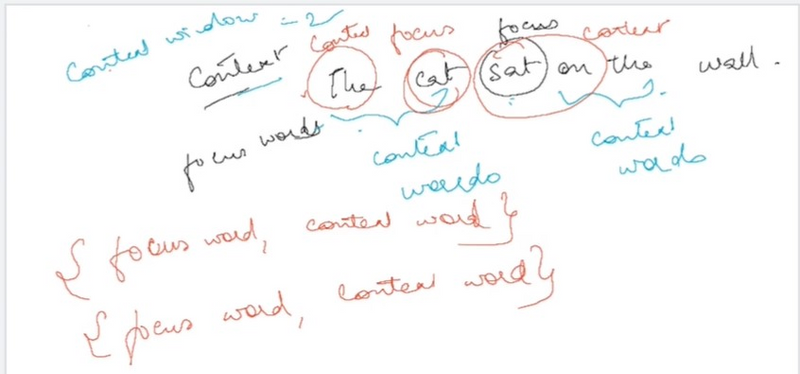 Context window = 2
context focus focus context
Context The cat sat on the wall.
focus words
context words
context words
{ focus word, context word }
{ focus word, context word }